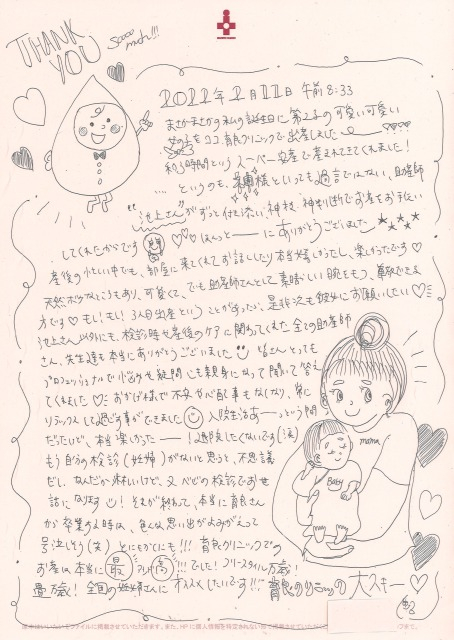 THANK YOU soooo much!!!
2022年2月22日 午前8:33
まさかまさかの私の誕生日に第2子の可愛い可愛い
女の子をココ育良クリニックで出産しました
約3時間というスーパー安産で産まれてきてくれました!
…というのも、女神様といっても過言ではない、助産師
"池上さん"がずっと付き添い、神技、神対応でお産をお手伝い
してくれたからです ♡♡♡ ほんっとーーーにありがとうございました
産後の忙しい中でも、部屋に来てくれてお話ししたり本当嬉しかったし、楽しかったです♡
天然ボケなところもあり、可愛くて、でも助産師さんとして素晴しい腕をもつ、尊敬できる
方です♡もし!もし!3人目出産ということがあったら、是非次も彼女にお願いしたい♡
池上さん以外にも、検診時や産後のケアに関わってくれた全ての助産師
さん、先生達も本当にありがとうございました 皆さんとっても
プロフェッショナルで悩みや疑問にも親身になって聞いて答え
てくれました♡おかげ様で不安や心配事もなくなり、常に
リラックスして過ごす事ができました 入院生活あーっという間
だったけど、本当楽しかったーー!退院したくないです(涙)
もう自分の検診(妊婦)がないと思うと、不思議
だし、なんだか淋しいけど、又ベビの検診でお世
話になります!それが終わって、本当に育良さん
から卒業する時は、色んな思い出がよみがえって
号泣しそう(笑)とにもかくにも!!!育良クリニックでの
お産は本当に最&高!!!でした!フリースタイル万歳!
畳万歳!全国の妊婦さんにオススメしたいです!!!育良クリニックの大スキー♡
mama
BABY